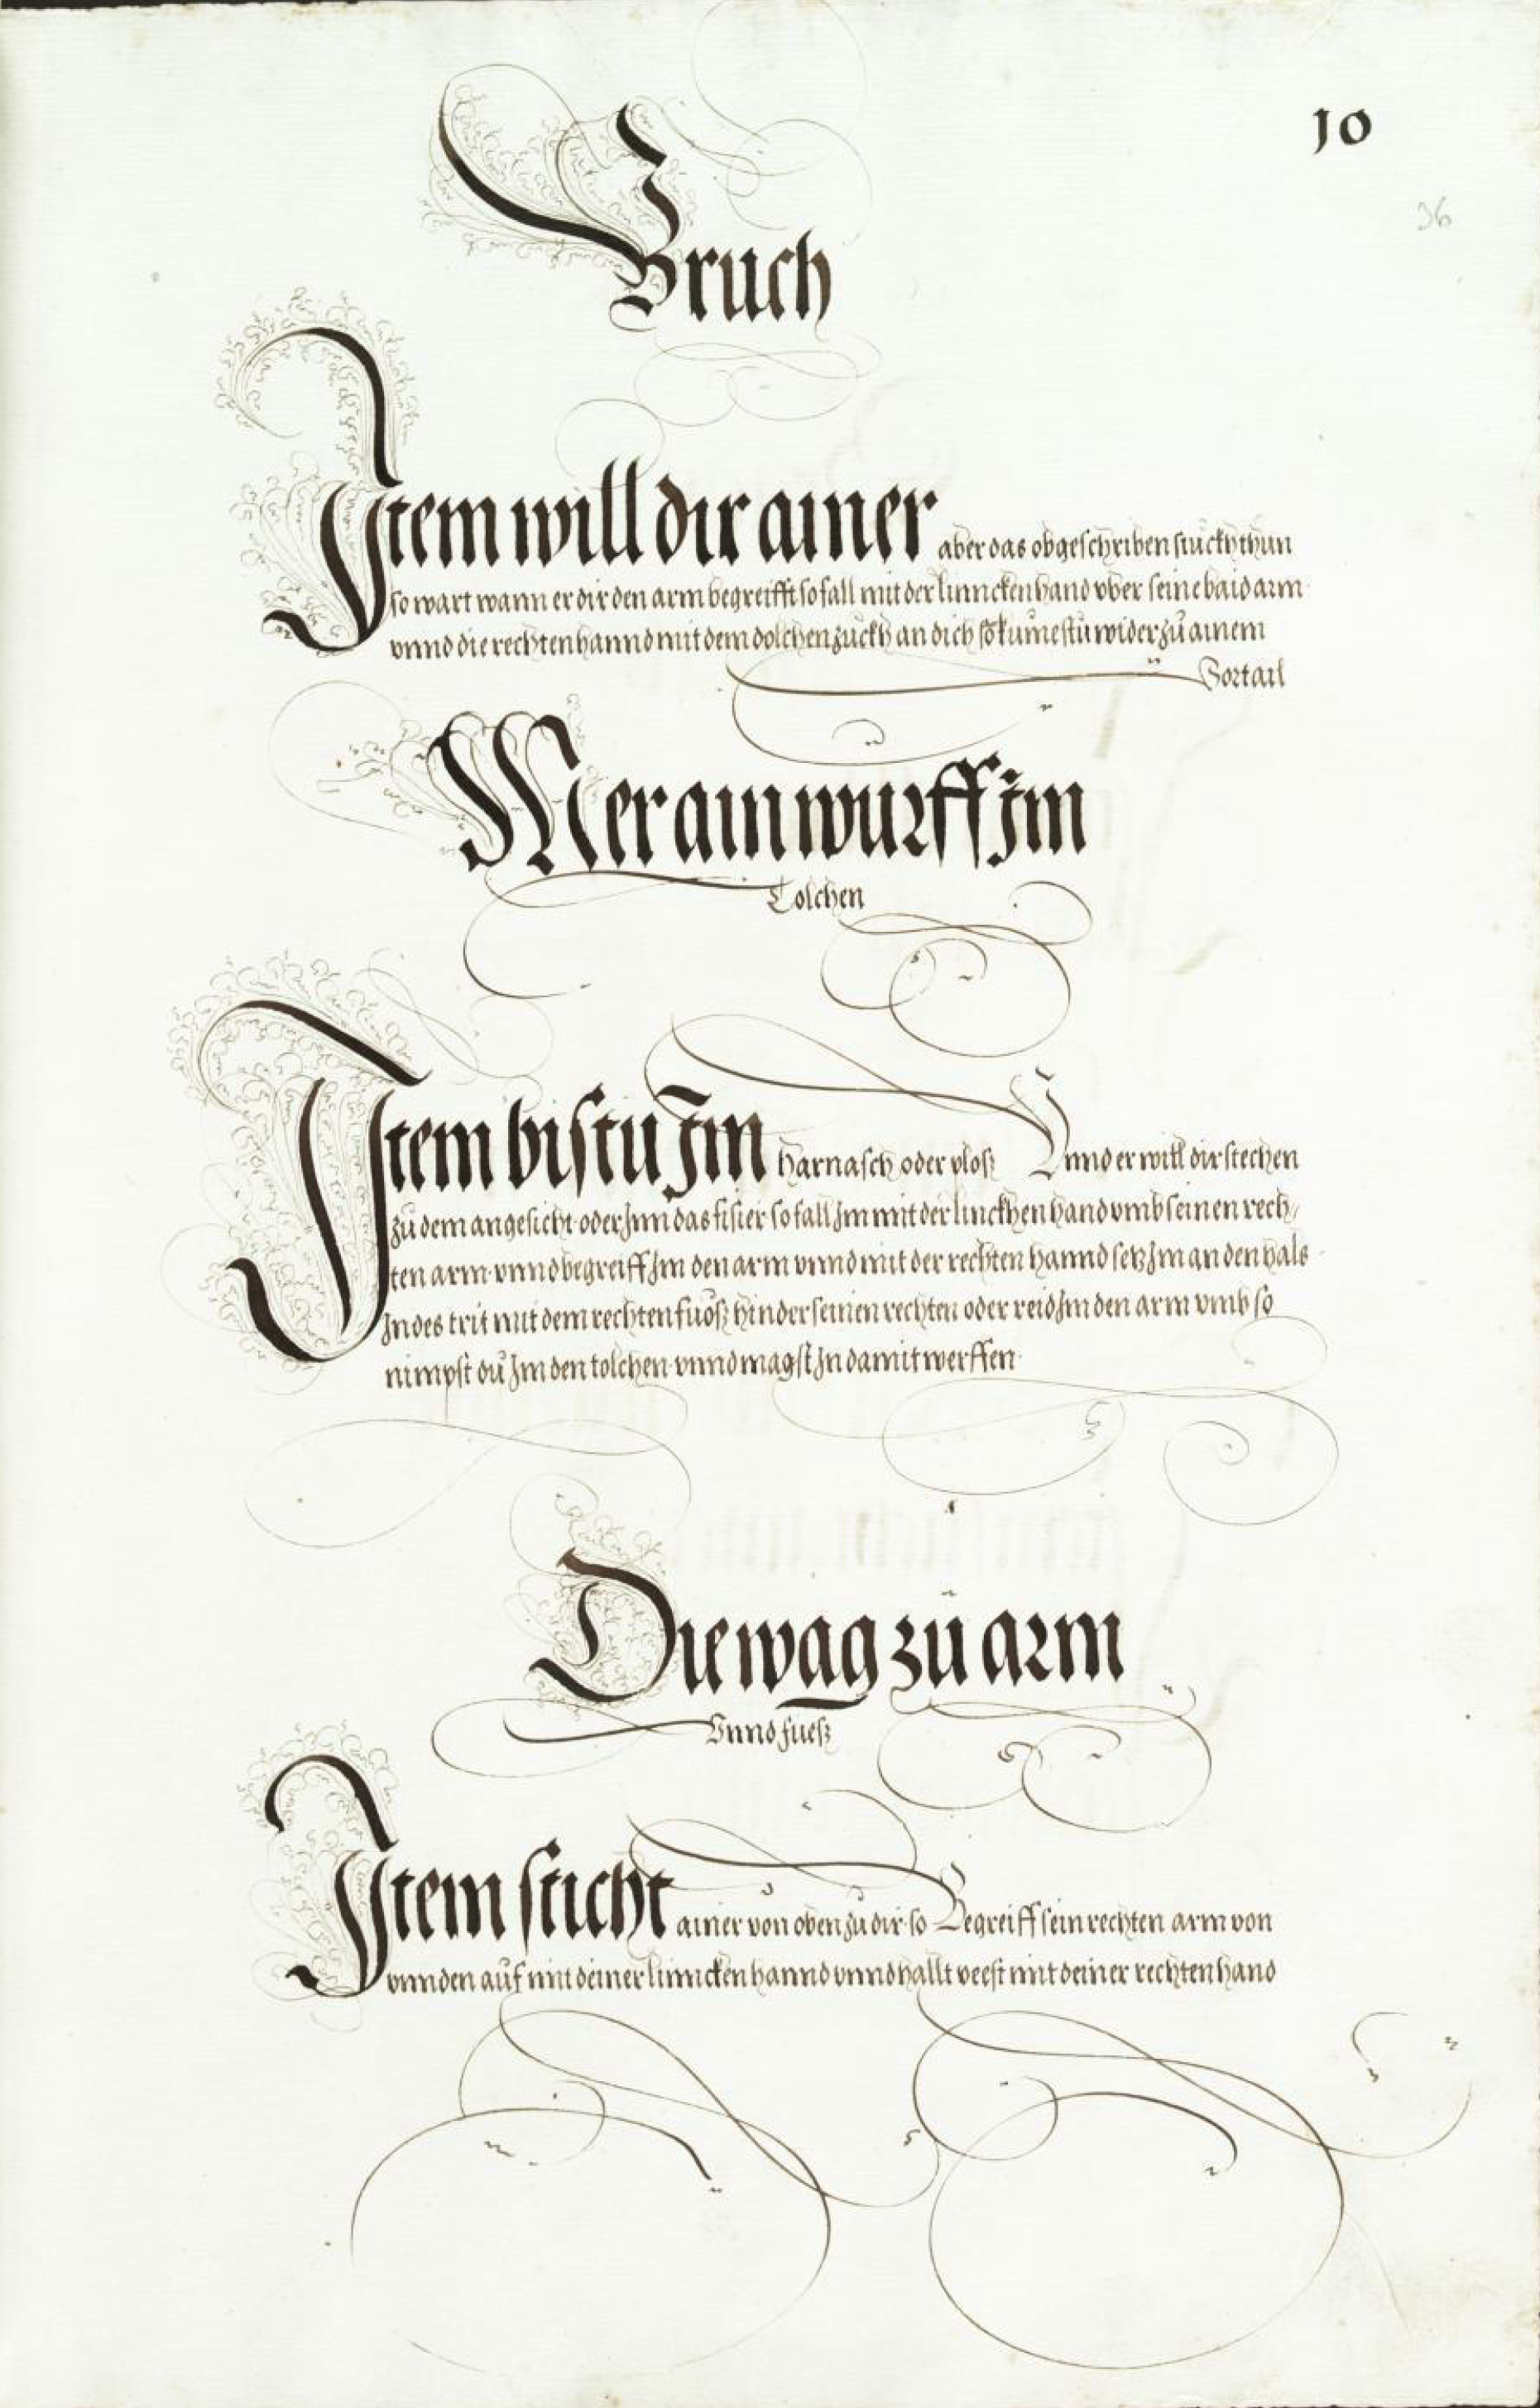 10
36
Bruch
Item will dir ainer aber das obgeschriben stuckh thun
so wart wann er dir den arm begreifft so fall mit der linncken hand vber seine baid arm
vnnd die rechten hannd mit dem dolchen zuckh an dich so kumestu wider zů ainem
Vortail
Mer ain wurff Im
Tolchen
Item bistu Im Harnasch oder ploß Vnnd er will dir stechen
zů dem angesicht oder Inn das fisier so fall Im mit der linckhen hand vmb seinen rech/
ten arm vnnd begreiff Im den arm vnnd mit der rechten hannd setz Im an den hals
Indes trit mit dem rechten fuoß hinder seinen rechten oder reid Im den arm vmb so
nimpst dů Im den tolchen vnnd magst In damit werffen
Die wag zů arm
Vnnd fueß
Item sticht ainer von oben zu dir so Begreiff sein rechten arm von
vnnden auf mit deiner linncken hannd vnnd hallt veest mit deiner rechten hand